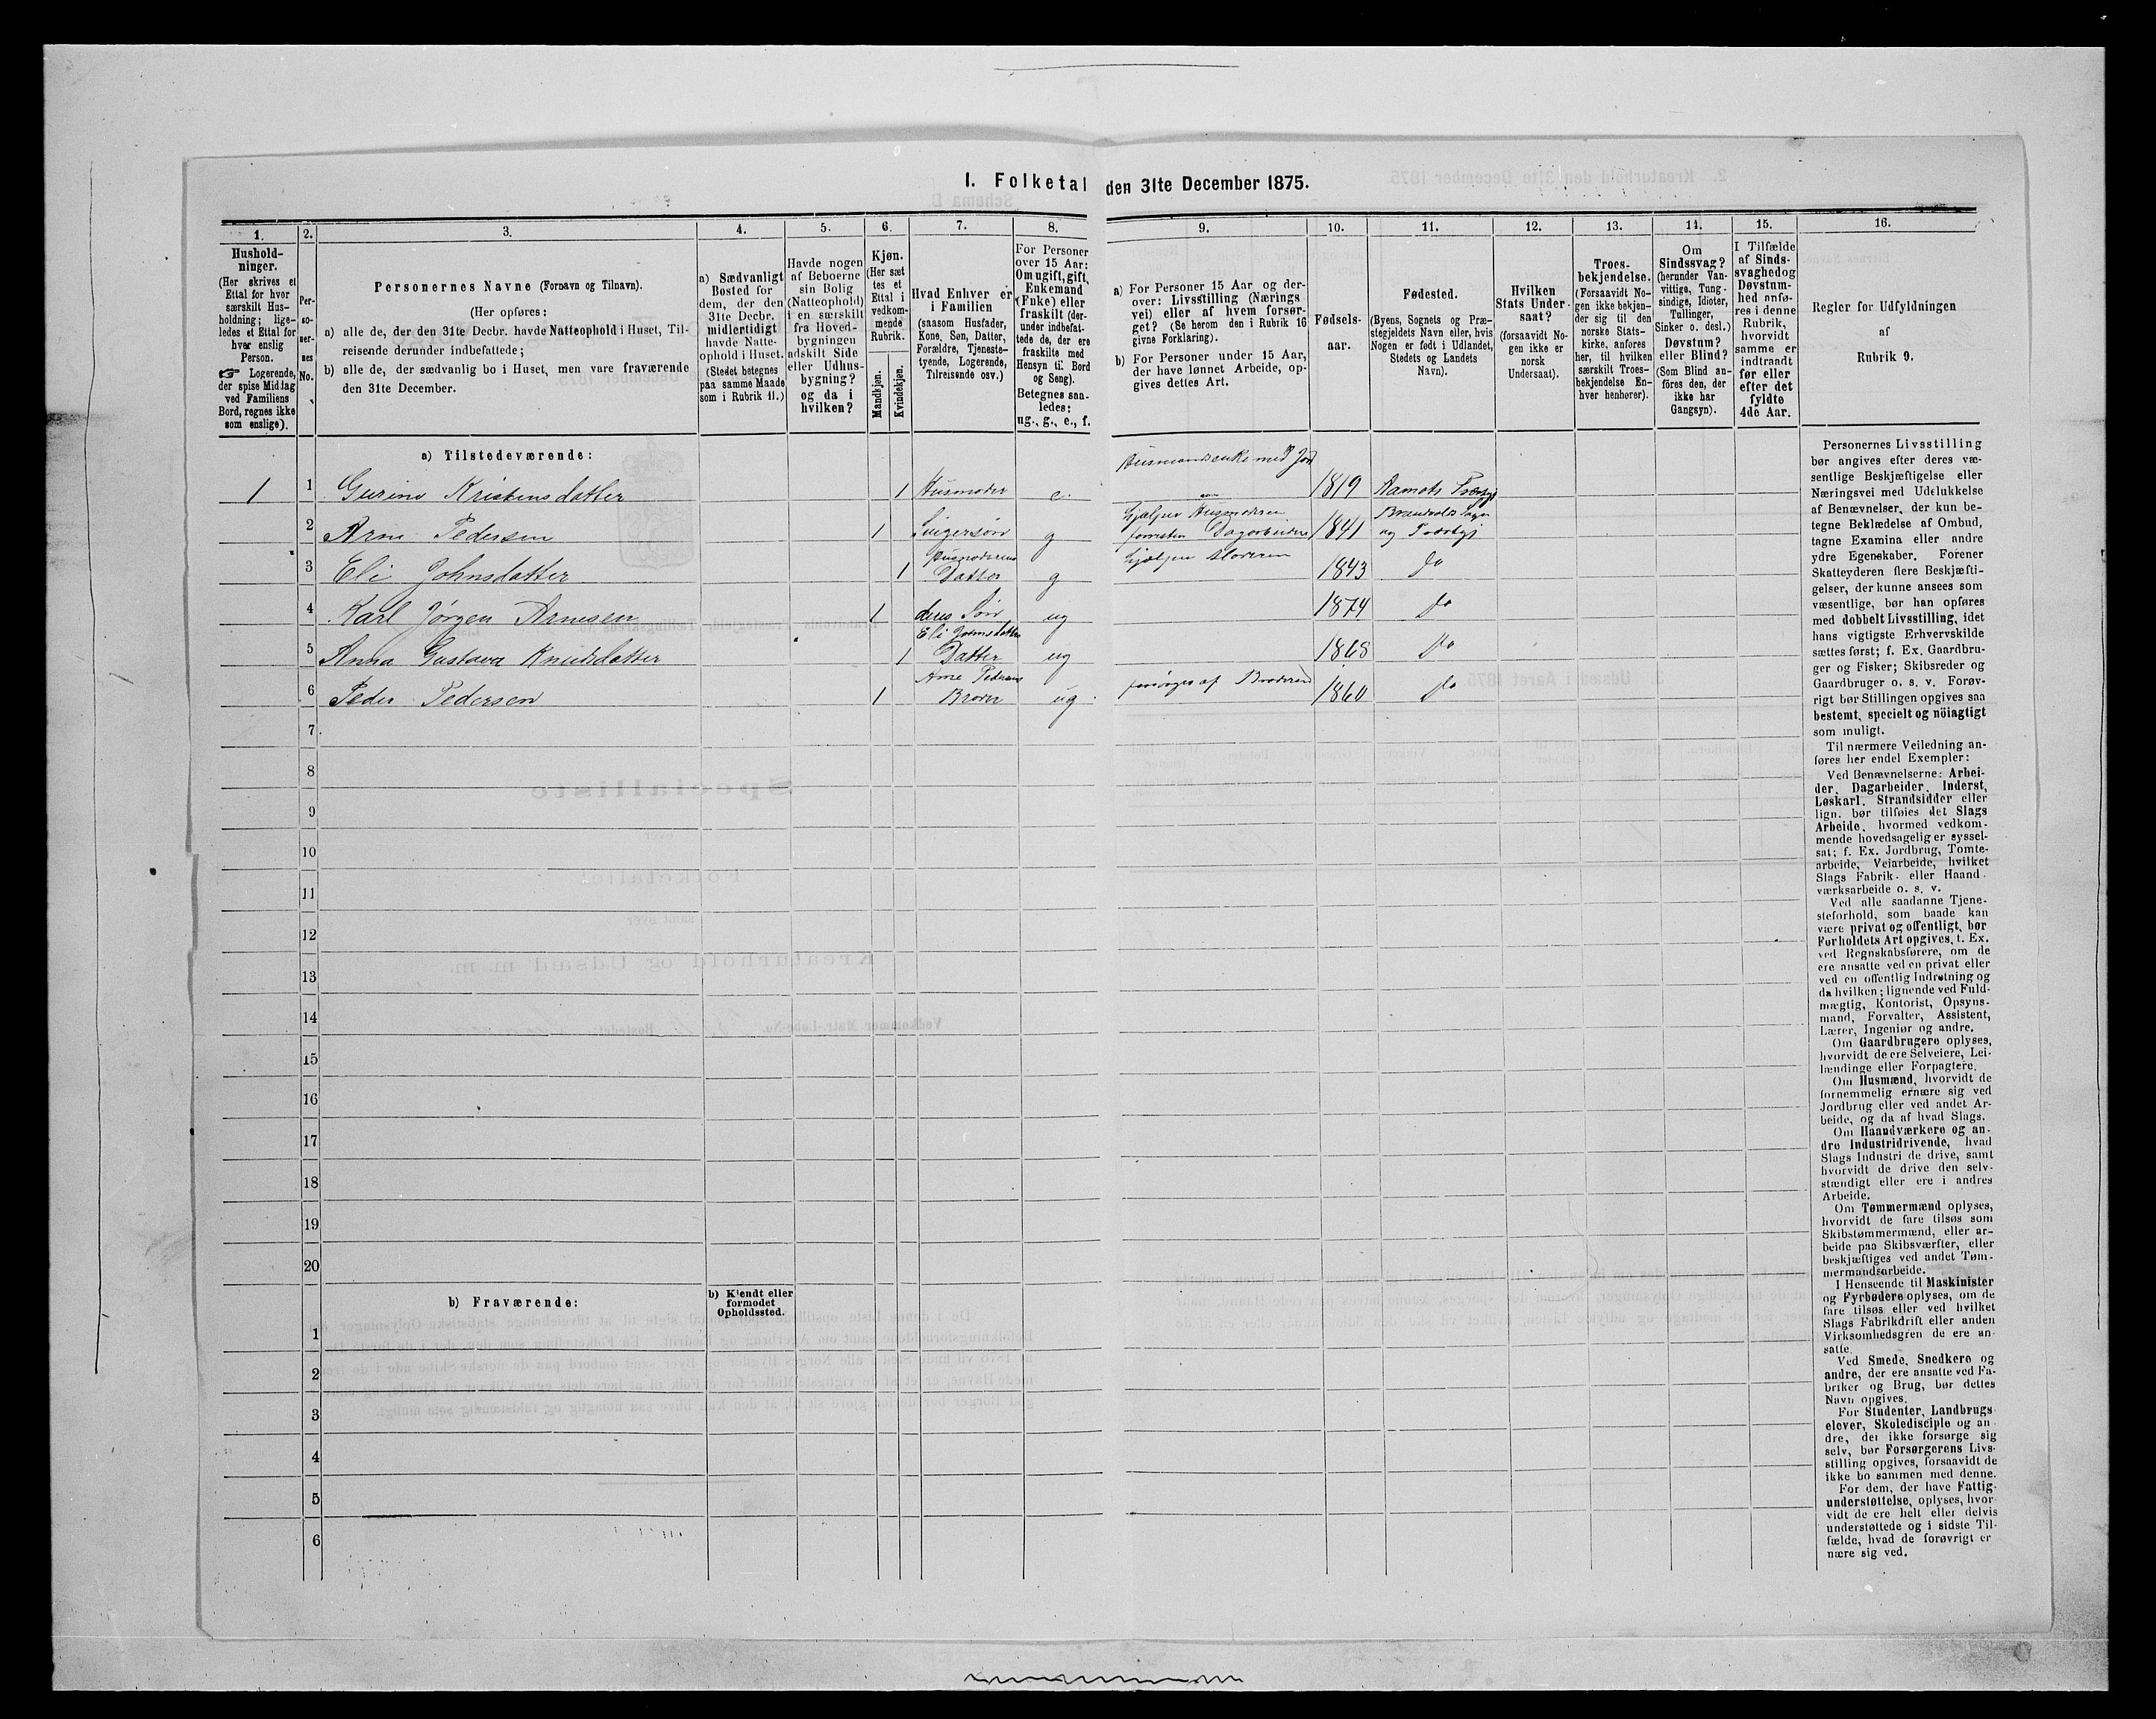 I. Folketal den 31te December 1875.
1.
2.
3.
4.
5.
6.
7.
8.
9.
10.
11.
12.
13.
14.
15.
16.
Hushold-
ninger.
(Her skrives et
Ettal for hver
særskilt Hus-
holdning; lige-
ledes et Ettal for
hver enslig
Person.
☞ Logerende,
der spise Middag
ved Familiens
Bord, regnes ikke
som enslige).
Per-
so-
ner-
nes
No.
Personernes Navne (Fornavn og Tilnavn).
(Her opføres:
a) alle de, der den 31te Decbr. havde Natteophold i Huset, Til-
reisende derunder indbefattede;
b) alle de, der sædvanlig bo i Huset, men vare fraværende
den 31te December.
a) Sædvanligt
Bosted for
dem, der den
31te Decbr.
midlertidigt
havde Natte-
ophold i Huset.
(Stedet betegnes
paa samme Maade
som i Rubrik 11.)
Havde nogen
af Beboerne
sin Bolig
(Natteophold)
i en særskilt
fra Hoved-
bygningen
adskilt Side
eller Udhus-
bygning?
og da i
hvilken?
Kjøn.
(Her sæt
tes et
Ettal i
vedkom-
mende
Rubrik.
Mandkjøn.
Kvindekjøn.
Hvad Enhver er
i Familien
(saasom Husfader,
Kone, Søn, Datter,
Forældre, Tjeneste-
tyende, Logerende,
Tilreisende osv.)
For Personer
over 15 Aar:
Om ugift, gift,
Enkemand
(Enke) eller
fraskilt (der-
under indbefat-
tede de, der ere
fraskilte med
Hensyn til Bord
og Seng).
Betegnes saa-
ledes:
ug., g., e., f.
a) For Personer 15 Aar og der-
over: Livsstilling (Nærings
vei) eller af hvem forsør-
get? (Se herom den i Rubrik 16
givne Forklaring).
b) For Personer under 15 Aar,
der have lønnet Arbeide, op-
gives dettes Art.
Fødsels-
aar.
Fødested.
(Byens, Sognets og Præ-
stegjeldets Navn eller, hvis
Nogen er født i Udlandet,
Stedets og Landets
Navn).
Hvilken
Stats Under-
saat?
(forsaavidt No-
gen ikke er
norsk
Undersaat).
Troes-
bekjendelse.
(Forsaavidt No-
gen ikke bekjen-
der sig til den
norske Stats-
kirke, anføres
her, til hvilken
særskilt Troes-
bekjendelse En-
hver henhører).
Om
Sindssvag?
(herunder Van-
vittige, Tung-
sindige, Idioter,
Tullinger,
Sinker o. desl.)
Døvstum?
eller Blind?
(Som Blind an-
føres den, der
ikke har
Gangsyn).
I Tilfælde
af Sinds-
svaghed og
Døvstum-
hed anfø-
res i denne
Rubrik,
hvorvidt
samme er
indtraadt
før eller
efter det
fyldte
4de Aar.
Regler for Udfyldningen
af
Rubrik 9.
a) Tilstedeværende:
Husmandsenke med Jord
1 1 Gurine Kristensdatter 1 Husmoder e. 1819 Aamots
2 Arne Pedersen 1 Svigersøn g Hjælper Husmoderen
forresten Dagarbeider 1841
3 Eli Johnsdatter 1 Husmoderens
Datter g hjælper Moderen 1843 do
4 Karl Jørgen Arnesen 1 deres Søn ug 1874 do
5 Anna Gustava Knudsdatter 1 Eli Johnsdatters
Datter ug 1868 do
6 Peder Pedersen 1 Arne Pedersens
Broder ug. forsørges af Broderen 1860 do
7
8
9
10
11
12
13
14
15
16
17
18
19
20
b) Fraværende:
b) Kjendt eller
formodet
Opholdssted.
1
2
3
4
5
6
Personernes Livsstilling
bør angives efter deres væ-
sentlige Beskjæftigelse eller
Næringsvei med Udelukkelse
af Benævnelser, der kun be-
tegne Beklædelse af Ombud,
tagne Examina eller andre
ydre Egenskaber. Forener
Skatteyderen flere Beskjæfti-
gelser, der kunne ansees som
væsentlige, bør han opføres
med dobbelt Livsstilling, idet
hans vigtigste Erhvervskilde
sættes først; f. Ex. Gaardbru-
ger og Fisker; Skibsreder og
Gaardbruger o. s. v. Forøv-
rigt bør Stillingen opgives saa
bestemt, specielt og nöiagtigt
som muligt.
Til nærmere Veiledning an-
føres her endel Exempler:
Ved Benævnelserne: Arbei-
der, Dagarbeider, Inderst,
Løskarl, Strandsidder eller
lign. bør tilføies det Slags
Arbeide, hvormed vedkom-
mende hovedsagelig er syssel-
sat; f. Ex. Jordbrug, Tomte-
arbeide, Veiarbeide, hvilket
Slags Fabrik- eller Haand-
værksarbeide o. s. v.
Ved alle saadanne Tjene-
steforhold, som baade kan
være privat og offentligt, bør
Forholdets Art opgives, t. Ex.
ved Regnskabsførere, om de
ere ansatte ved en privat eller
ved en offentlig Indretning og
da hvilken; lignende ved Fuld-
mægtig, Kontorist, Opsyns-
mand, Forvalter, Assistent,
Lærer, Ingeniør og andre.
Om Gaardbrugere oplyses,
hvorvidt de ere Selveiere, Lei-
lændinge eller Forpagtere.
Om Husmænd, hvorvidt de
fornemmelig ernære sig ved
Jordbrug eller ved andet Ar-
beide, og da af hvad Slags.
Om Haandværkere og an-
dre Industridrivende, hvad
Slags Industri de drive, samt
hvorvidt de drive den selv-
stændigt eller ere i andres
Arbeide.
Om Tømmermænd oplyses,
hvorvidt de fare tilsøs som
Skibstømmermænd, eller ar-
beide paa Skibsværfter, eller
beskjæftiges ved andet Tøm-
mermandsarbeide.
I Henseende til Maskinister
og Fyrbødere oplyses, om de
fare tilsøs eller ved hvilket
Slags Fabrikdrift eller anden
Virksomhedsgren de ere an-
satte.
Ved Smede, Snedkere og
andre, der ere ansatte ved Fa-
briker og Brug, bør dettes
Navn opgives.
For Studenter, Landbrugs-
elever, Skoledisciple og an-
dre, der ikke forsørge sig
selv, bør Forsørgerens Livs-
stilling opgives, forsaavidt de
ikke bo sammen med denne.
For dem, der have Fattig-
understøttelse, oplyses, hvor-
vidt de ere helt eller delvis
understøttede og i sidste Til-
fælde, hvad de forøvrigt er-
nære sig ved.